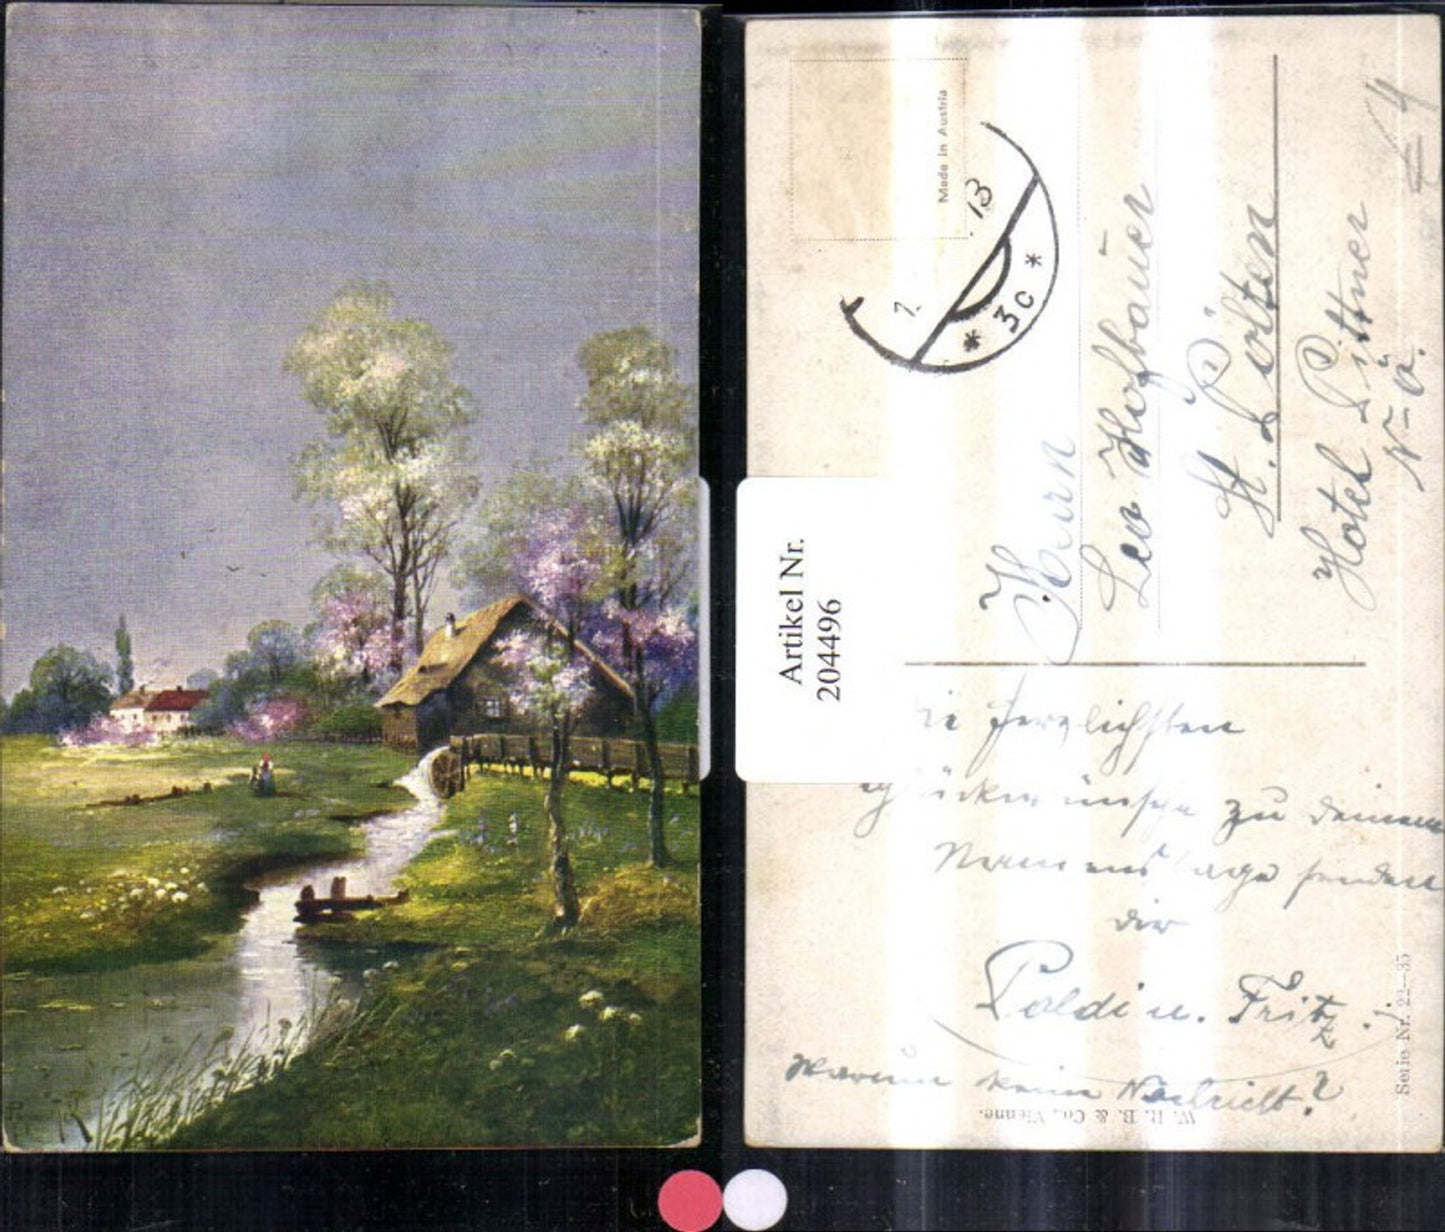 Made in Austria
. 13
7.
* 30 *
Artikel Nr.
204496
Herrn
Leo Hofbauer
St. Pölten
Hotel Pittner
N-Ö.
4
Die herzlichsten
Glückwünsche zu deinem
Namenstage senden
dir
Poldi u. Fritz.
Warum keine Nachricht?
W. R. B. & Co., Vienne.
Serie Nr. 22—35